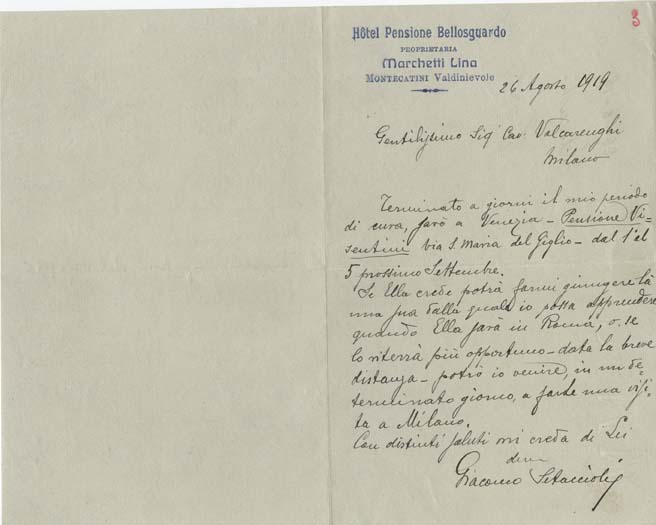 3
Hôtel Pensione Bellosguardo
PROPRIETARIA
Marchetti Lina
MONTECATINI Valdinievole
26 Agosto 1919
Gentilissimo Sigr Cav: Valcarenghi
Milano
Terminato a giorni il mio periodo
di cura, sarò a Venezia – Pensione Vi-
sentini via S. Maria del Giglio – dal 1° al
5 prossimo Settembre.
Se Ella crede potrà farmi giungere là
una sua dalla quale io possa apprendere
quando Ella sarà in Roma, o, se
lo riterrà più opportuno – data la breve
distanza – potrò io venire, in un de-
terminato giorno, a farle una visi-
ta a Milano.
Con distinti saluti mi creda di Lei
Giacomo Setaccioli